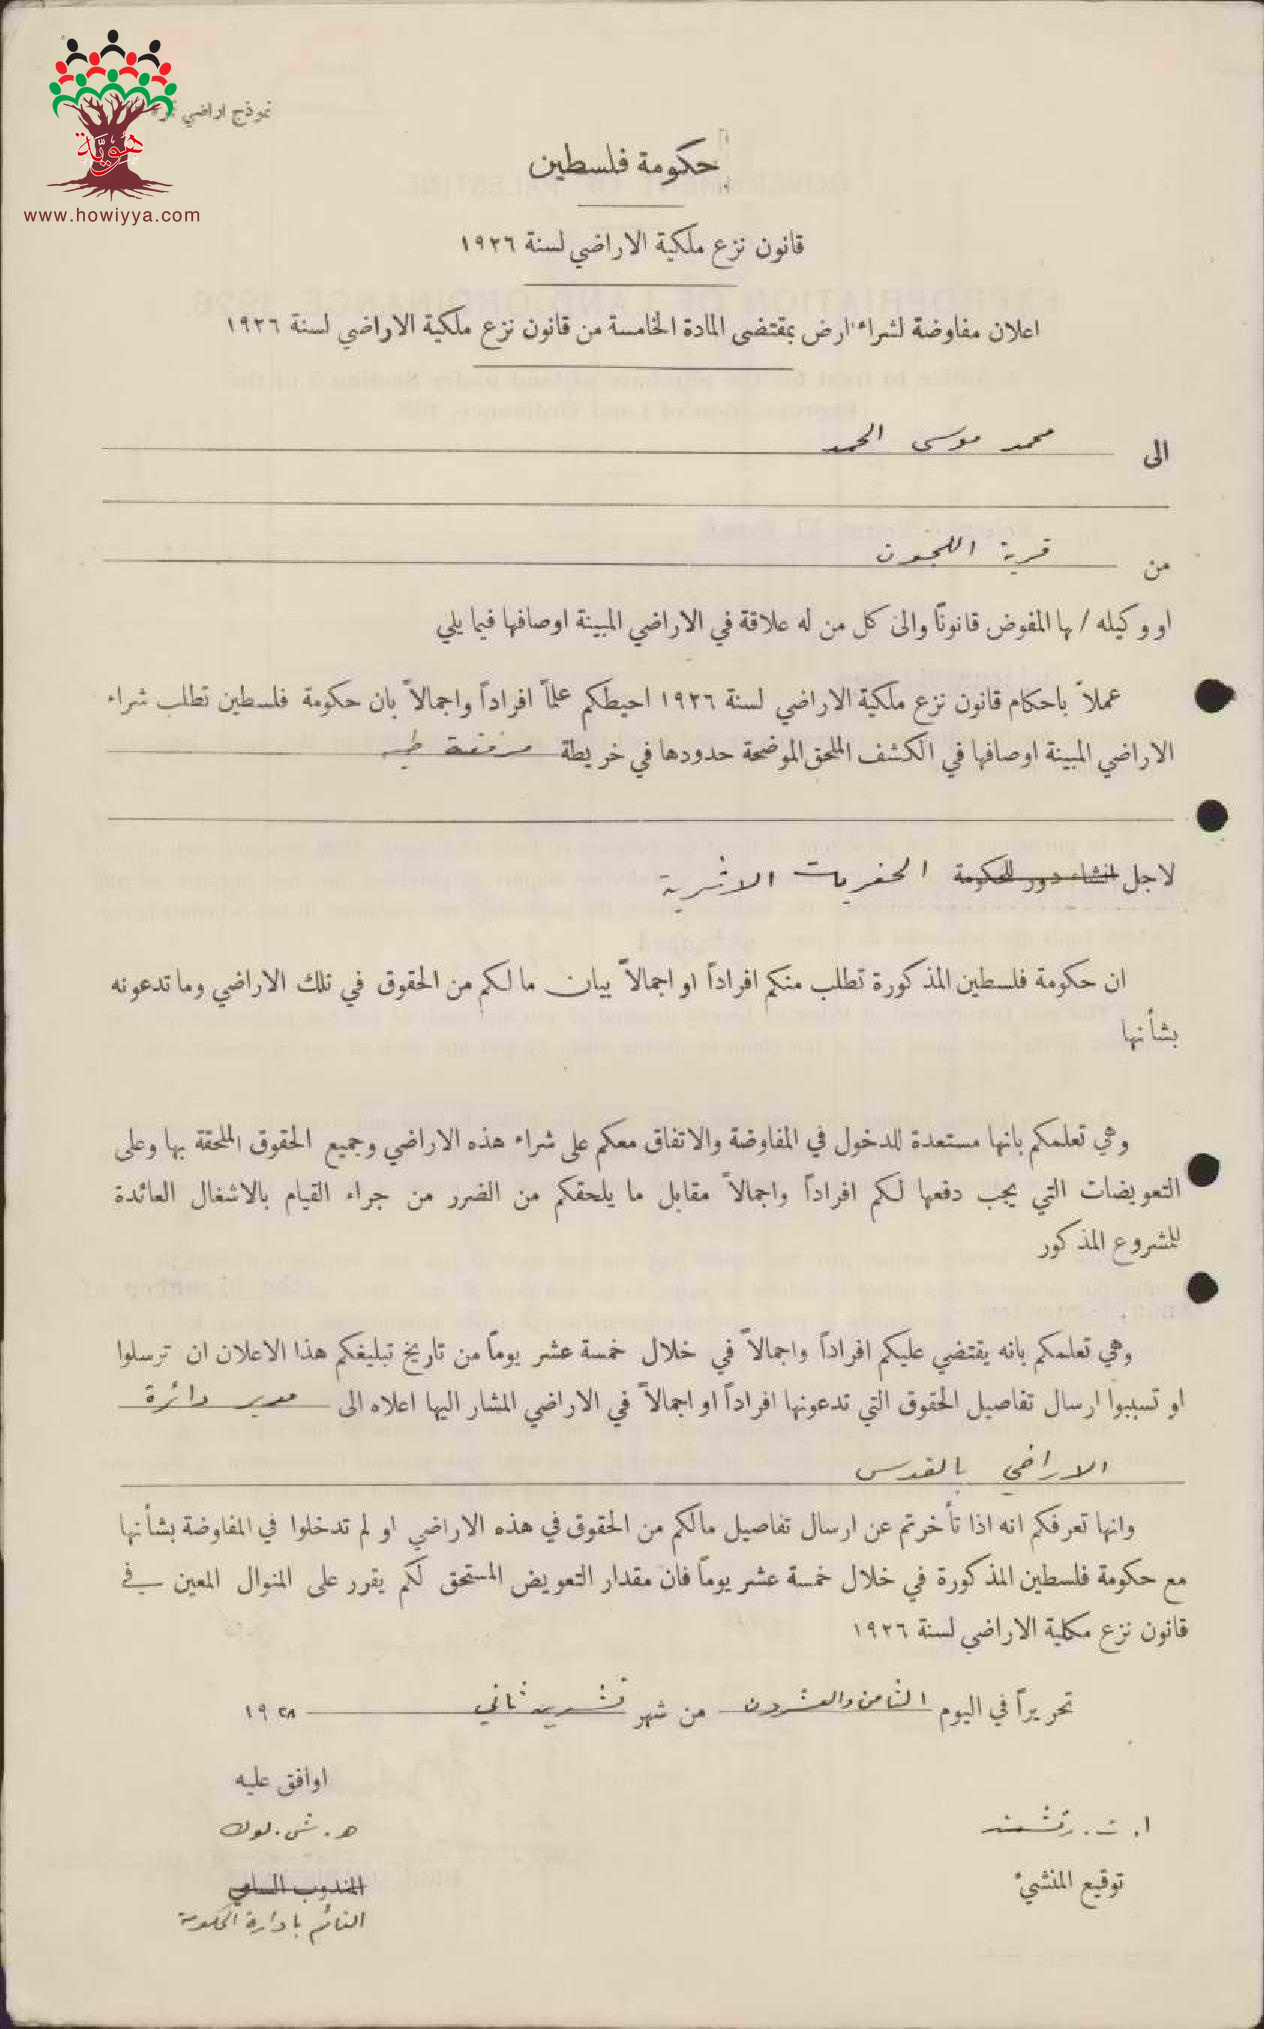 هويّة
www.howiyya.com
نموذج اراضي
حكومة فلسطين
قانون نزع ملكية الاراضي لسنة ١٩٢٦
اعلان مفاوضة لشراء ارض بمقتضى المادة الخامسة من قانون نزع ملكية الاراضي لسنة ١٩٢٦
الى محمد موسى الحمد
من قرية اللجون
او وكيله / بها المفوض قانونًا والى كل من له علاقة في الاراضي المبينة اوصافها فيما يلي
عملاً باحكام قانون نزع ملكية الاراضي لسنة ١٩٢٦ احيطكم علماً افراداً واجمالاً بان حكومة فلسطين تطلب شراء
الاراضي المبينة اوصافها في الكشف الملحق الموضحة حدودها في خريطة مرفقة طيه
لاجل انشاء دور للحكومة الحفريات الاثرية
ان حكومة فلسطين المذكورة تطلب منكم افراداً او اجمالاً بيان ما لكم من الحقوق في تلك الاراضي وما تدعونه
بشأنها
وهي تعلمكم بانها مستعدة للدخول في المفاوضة والاتفاق معكم على شراء هذه الاراضي وجميع الحقوق الملحقة بها وعلى
التعويضات التي يجب دفعها لكم افراداً واجمالاً مقابل ما يلحقكم من الضرر من جراء القيام بالاشغال العائدة
للمشروع المذكور
وهي تعلمكم بانه يقتضي عليكم افراداً واجمالاً في خلال خمسة عشر يوماً من تاريخ تبليغكم هذا الاعلان ان ترسلوا
او تسببوا ارسال تفاصيل الحقوق التي تدعونها افراداً او اجمالاً في الاراضي المشار اليها اعلاه الى مدير دائرة
الاراضي بالقدس
وانها تعرفكم انه اذا تأخرتم عن ارسال تفاصيل مالكم من الحقوق في هذه الاراضي او لم تدخلوا في المفاوضة بشأنها
مع حكومة فلسطين المذكورة في خلال خمسة عشر يوماً فان مقدار التعويض المستحق لكم يقرر على المنوال المعين في
قانون نزع مكلية الاراضي لسنة ١٩٢٦
تحريراً في اليوم الثامن والعشرون من شهر تشرين ثاني ١٩٢٨
اوافق عليه
ا. ت. رتشمند ه. ش. لوك
توقيع المنشيء المندوب السامي
القائم بادارة الحكومة